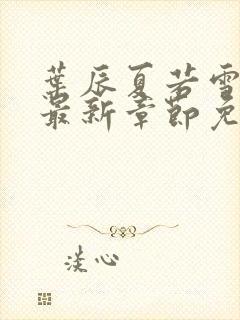 葉辰夏若雪
最新章節免
淡心